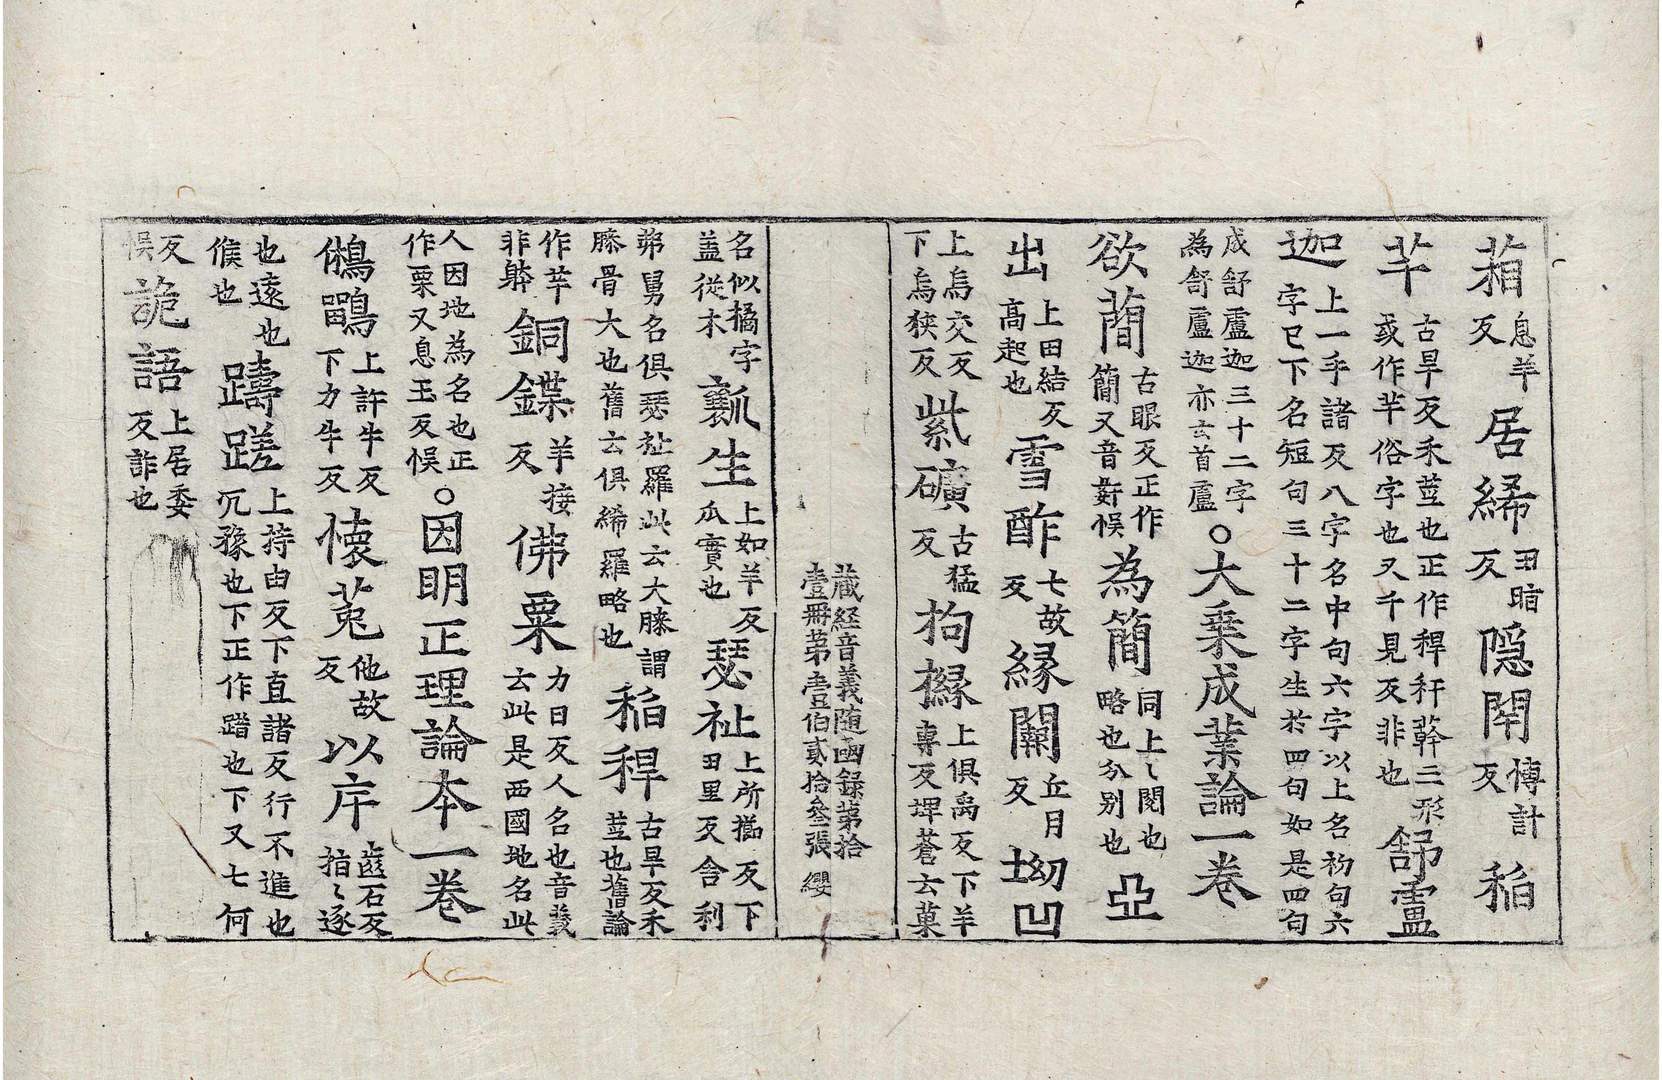 葙息羊反居絺丑脂反隱閇博計反稲
芉古旱反禾莖也正作稈秆䕞三形或作芉俗字也又千見反非也舒盧
迦上一乎諸反八字名中句六字以上名初句六字巳下名短句三十二字生於四句如是四句
成舒盧迦三十二字為舒盧迦亦云首盧○大乗成業論一卷
欲蕳古眼反正作簡又音姧悞為簡同上上閱也略也分别也亞
出上田結反高起也雪酢七故反縁闠丘月反坳凹
上烏交反下烏狹反紫礦古猛反拘櫞上俱禹反下羊專反埤蒼云菓
藏経音義随函録第拾壹冊第壹伯貳拾叁張 纓
名似橘字盖従木瓤生上如羊反瓜實也瑟祉上所擳反下丑里反舎利
弟舅名俱瑟祉羅此云大膝謂膝骨大也舊云俱絺羅略也稲稈古旱反禾莖也舊論
作芉非䏻銅鍱羊接反佛粟力日反人名也音義云此是西國地名此
人因地為名也正作栗又息玉反悞○因明正理論本一卷
鵂鶹上許牛反下力牛反懐菟他故反以斥齒石反指指逐
也遠也候也躊躇上持由反下直諸反行不進也冘豫也下正作躇也下又七何
反悞詭語上居委反詐也